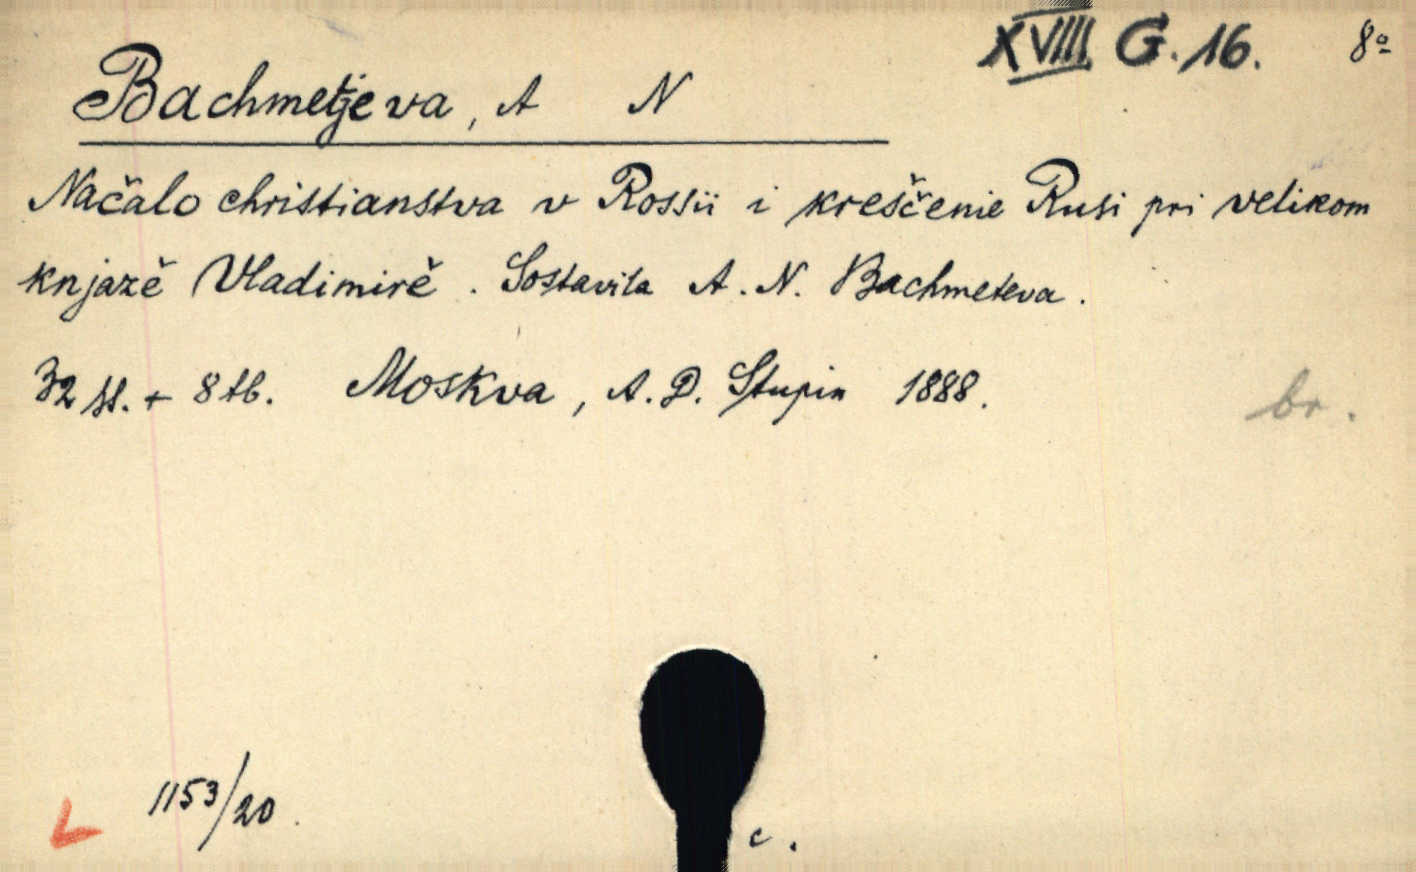 XVIIII G. 16. 8º
Bachmetjeva, A N
Načalo christianstva v Rossii i kreščenie Rusi pri velikom
knjazě Vladimirě. Sostavila A. N. Bachmeteva.
32 ss. + 8 tb. Moskva, A. D. Stupin 1888.
br.
1153/20.
c.